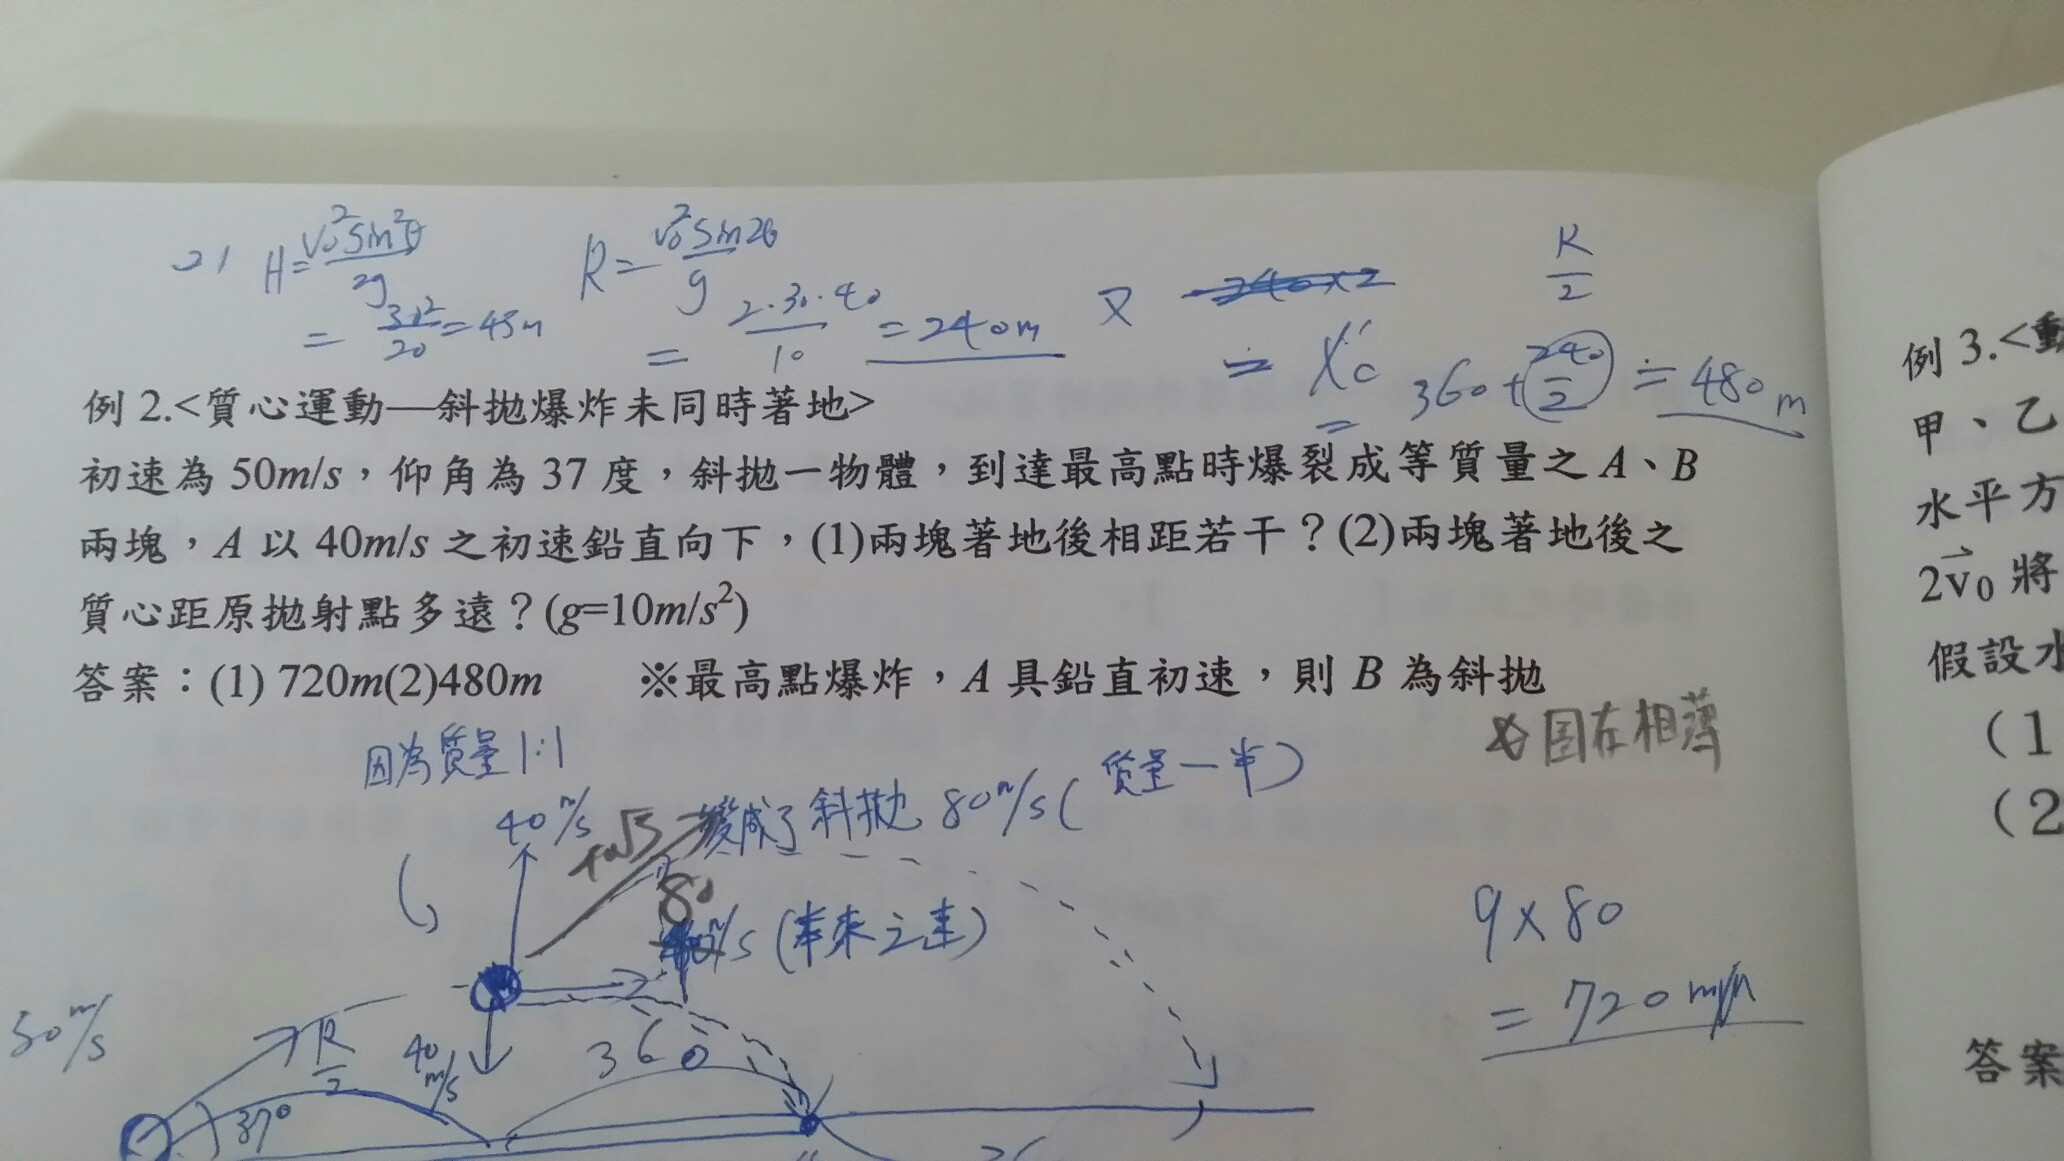 21 H=V₀²sin²θ/2g R=V₀²sin2θ/g
= 30²/20 =45m = 2·30·40/10 =240m 又 240×2 R/2
= Xc' 360+240/2 = 480m
例 2.<質心運動—斜拋爆炸未同時著地>
初速為 50m/s，仰角為 37 度，斜拋一物體，到達最高點時爆裂成等質量之 A、B
兩塊，A 以 40m/s 之初速鉛直向下，(1)兩塊著地後相距若干？(2)兩塊著地後之
質心距原拋射點多遠？(g=10m/s²)
答案：(1) 720m(2)480m ※最高點爆炸，A 具鉛直初速，則 B 為斜拋
因為質量1:1
40m/s 變成了斜拋 80m/s (質量一半)
80
m/s (本來之速)
9×80
= 720
50m/s
R/2
40 m/s
360
37°
例 3.<動
甲、乙
水平方
2v⃗₀ 將
假設水
(1
(2
答案